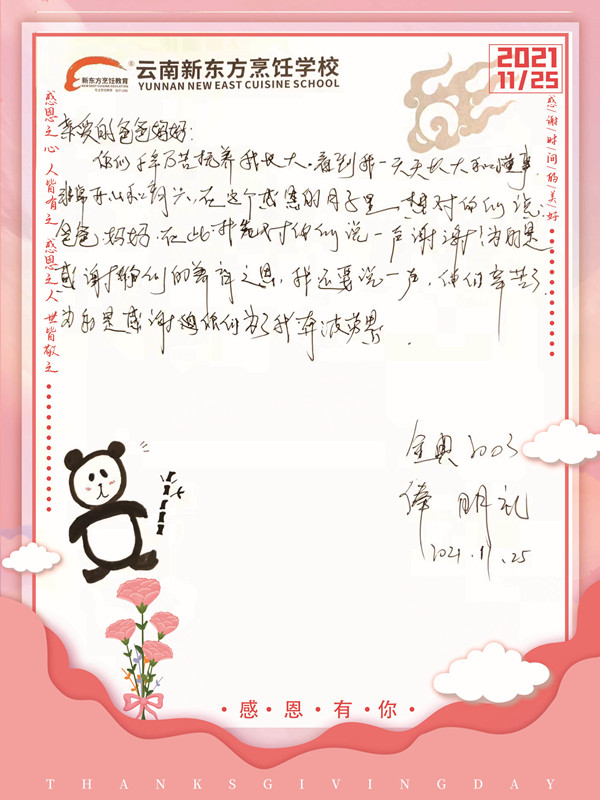 新东方烹饪教育
云南新东方烹饪学校
YUNNAN NEW EAST CUISINE SCHOOL
2021
11/25
感恩之心 人皆有之 感恩之人 世皆敬之
感谢时间的美好
亲爱的爸爸妈妈:
你们千辛万苦抚养我长大,看到我一天天长大和懂事
非常开心和,在这个感恩的月子里,想对你们说:
爸爸妈妈,在此我先对你们说一声谢谢!为的是
感谢你们的养育之恩,我还要说一声,你们辛苦了.
为的是感谢你们为了我奔波劳累.
金典2003
明礼
2021.11.25
·感·恩·有·你·
THANKSGIVINGDAY